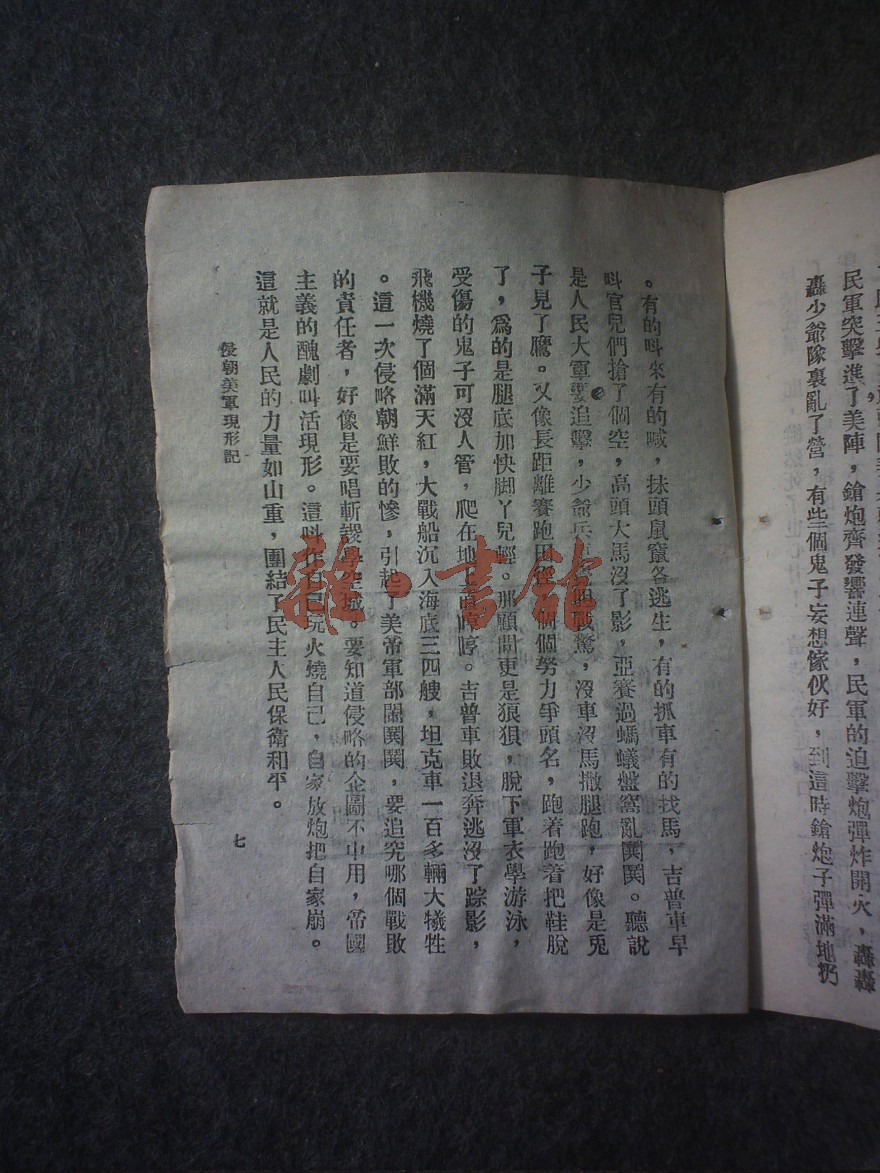 民軍突擊進了美陣，鎗炮齊發響連聲，民軍的迫擊炮彈炸開火，轟轟
轟少爺隊裏亂了營，有些個鬼子妄想傢伙好，到這時鎗炮子彈滿地扔
。有的叫來有的喊，抹頭鼠竄各逃生，有的抓車有的找馬，吉普車早
叫官兒們搶了個空，高頭大馬沒了影，亞賽過螞蟻盤窩亂鬨鬨。聽說
是人民大軍要追擊，少爺兵戰驚，沒車沒馬撒腿跑，好像是兎
子見了鷹。又像長距離賽跑個個努力爭頭名，跑着跑着把鞋脫
了，爲的是腿底加快脚丫兒輕。那顧問更是狼狽，脫下軍衣學游泳，
受傷的鬼子可沒人管，爬在地上哼哼。吉普車敗退奔逃沒了踪影，
飛機燒了個滿天紅，大戰船沉入海底三四艘，坦克車一百多輛大犧牲
。這一次侵略朝鮮敗的慘，引起了美帝軍部鬧鬨鬨，要追究哪個戰敗
的責任者，好像是要唱斬謖空城。要知道侵略的企圖不中用，帝國
主義的醜劇叫活現形。這叫作自己玩火燒自己，自家放炮把自家崩。
這就是人民的力量如山重，團結了民主人民保衛和平。
侵朝美軍現形記
七
雜·書館